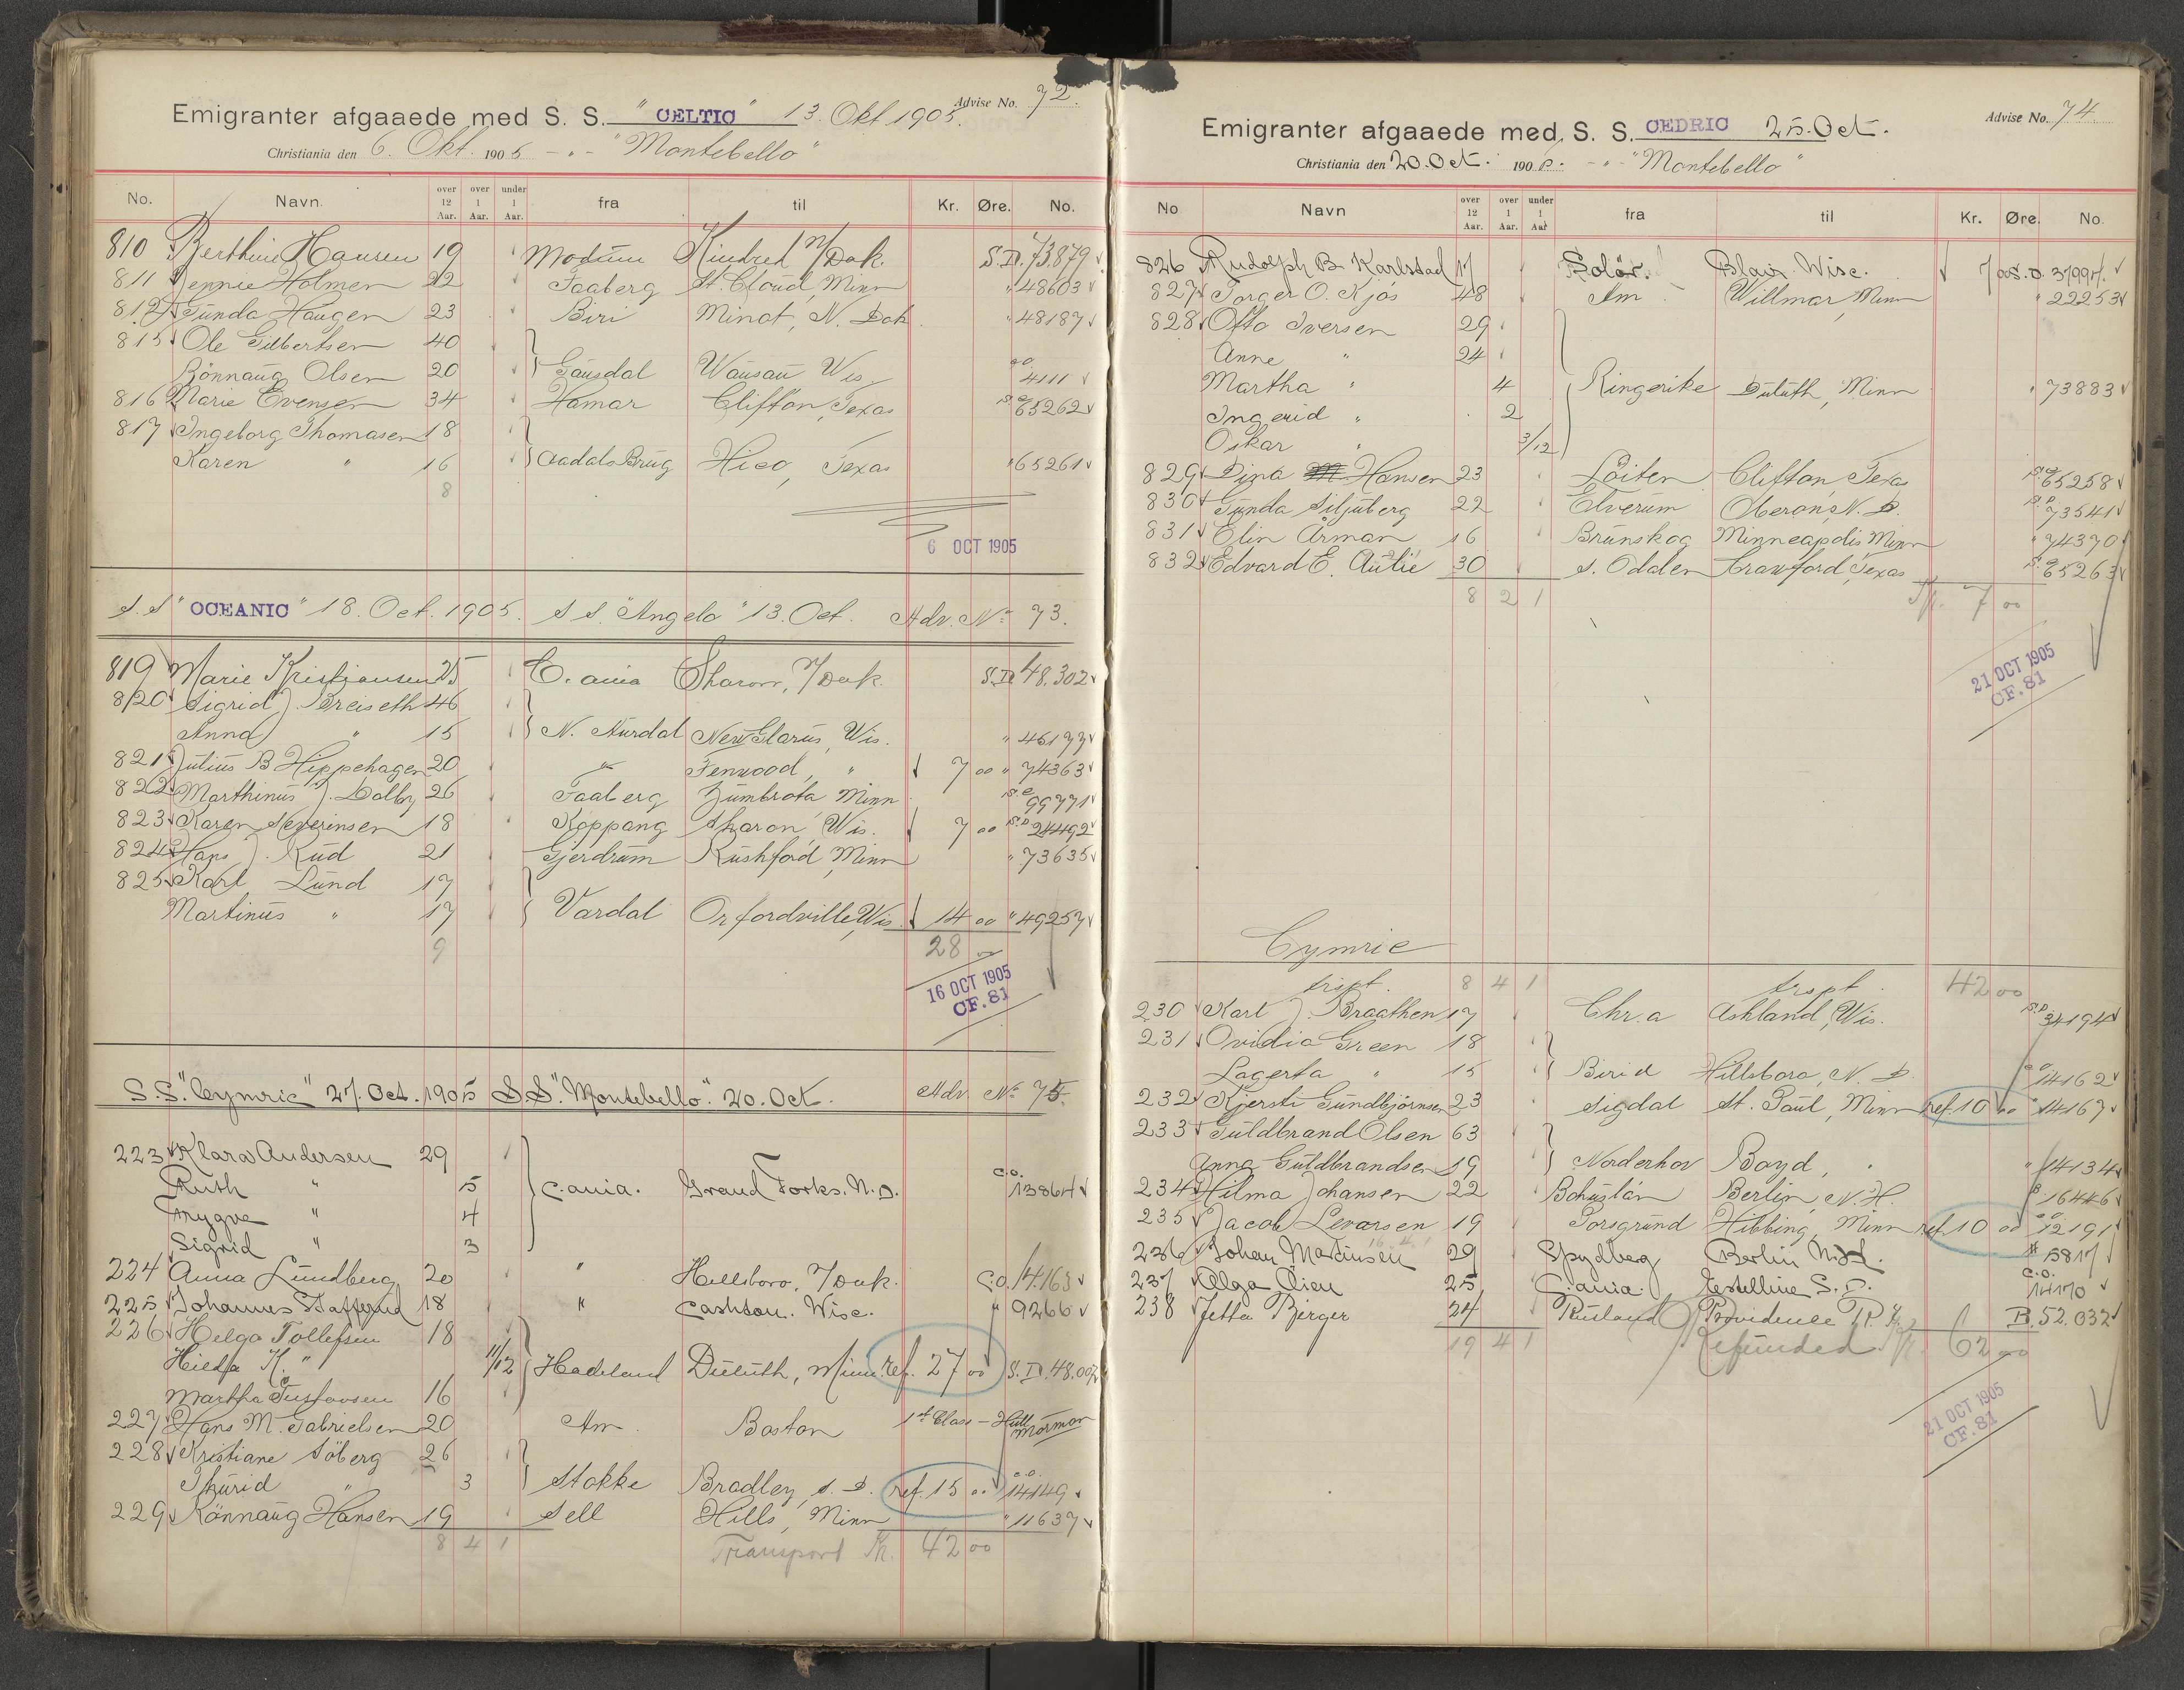 Emigranter afgaaede med S. S. "CELTIC" 13. Okt 1905. Advise No. 72.
Christiania den 6. Okt. 1905 - " - "Montebello"
No. Navn. over 12 Aar. over 1 Aar. under 1 Aar. fra til Kr. Øre. No.
810 Berthine Hansen 19 Modum Kindred N/Dak. S.D. 73.879
811 Jennie Holmen 22 Faaberg St. Cloud, Minn " 48603
812 Gunda Haugen 23 Biri Minot, N. Dak. " 48187
815 Ole Gilbertsen 40
Rönnaug Olsen 20 Gausdal Wausau Wis. c.o. 4111
816 Marie Evensen 34 Hamar Clifton, Texas 65262
817 Ingeborg Thomasen 18
Karen " 16 Aadals Brug Hico, Texas " 65261
8
6 OCT 1905
S.S "OCEANIC" 18. Oct. 1905. S S. "Angelo" 13. Oct. Adv. No 73.
819 Marie Kristiansen 25 C.ania Sharon, N/Dak. S.D. 48.302
820 Sigrid J. Breiseth 46
Anna " 15 N. Aurdal New Glarus, Wis. " 46177
821 Julius B Hippehagen 20 " Fenwood, " 7 00 " 74363
822 Marthinus J. Dalby 26 Faaberg Zumbrota Minn S.C. 99771
823 Karen Severinsen 18 Koppang Sharon, Wis. 7 00 S.D. 24492
824 Hans J. Rud 21 Gjerdrum Rushford, Minn " 73635
825 Karl Lund 17
Martinus " 17 Vardal Orfordville, Wis. 14 00 " 49257
9 28 00
16 OCT 1905
CF. 81
S.S. "Cymric" 27. Oct. 1905 S.S. "Montebello". 20. Oct. Adv. No 75.
223 Klara Andersen 29
Ruth " 5 C.ania. Grand Forks. N.D. C.O. 13864
Trygve " 4
Sigrid " 3
224 Anna Lundberg 20 " Hillsboro, N/Dak. C.O. 14163
225 Johannes Staffgard 18 " Cashton. Wisc. " 9266
226 Helga Tollefsen 18
Hilda K. " 11/12 Hadeland Duluth, Minn. ref. 27 00 S.D. 48.007
Martha Gustavsen 16
227 Hans M. Gabrielsen 20 Am Boston 1st Class - Hull Mormon
228 Kristiane Söberg 26
Thurid " 3 Stokke Bradley, S. D. ref. 15 00 c.o. 14149
229 Rönnaug Hansen 19 Sell Hills, Minn " 11637
8 4 1 Transport Kr. 42 00
Emigranter afgaaede med S. S. CEDRIC 25. Oct. Advise No. 74
Christiania den 20. Oct. 1905. - " - "Montebello"
No Navn over 12 Aar. over 1 Aar. under 1 Aar fra til Kr. Øre. No.
826 Rudolph B. Karlstad 17 Solör. Blair. Wisc. 7 00 S.D. 37997.
827 Torger O. Kjös 48 Am Willmar, Minn " 22253
828 Otto Iversen 29
Anne " 24
Martha " 4 Ringerike Duluth, Minn " 73883
Ingerid " 2
Oskar " 3/12
829 Dina Hansen 23 Löiten Clifton, Texas 65258
830 Gunda Siljuberg 22 Elverum Oberon, N. D. S.D. 73541
831 Elin Arman 16 Brunskog Minneapolis Minn " 74370
832 Edvard E. Autie 30 S. Odalen Crawford, Texas 65263
8 2 1 Kr. 7 00
21 OCT 1905
CF. 81
Cymric
trspt. 8 4 1 trspt. 42 00
230 Karl J. Braathen 17 Chr.a Ashland, Wis. S.D. 34194
231 Ovidia Green 18
Lagerta " 15 Birid Hillsboro, N. D. c.o. 14162
232 Kjersti Gundbjörnsen 23 Sigdal St. Paul, Minn ref. 10 00 " 14167
233 Guldbrand Olsen 63
Anna Guldbrandsen 19 Norderhov Boyd, " " 14134
234 Hilma Johansen 22 Bohuslän Berlin, N.H. 16446
235 Jacob Levorsen 19 Porsgrund Hibbing, Minn ref. 10 00 c.o. 12191
236 Johan Martinsen 29 Spydberg Berlin N.H. 15817
237 Olga Lien 25 C.ania. Estelline S. D. C.O. 14170
238 Jetta Berger 24 Rusland Providence R. I. B. 52.032
19 4 1 Refunded Kr. 62 00
21 OCT 1905
CF. 81